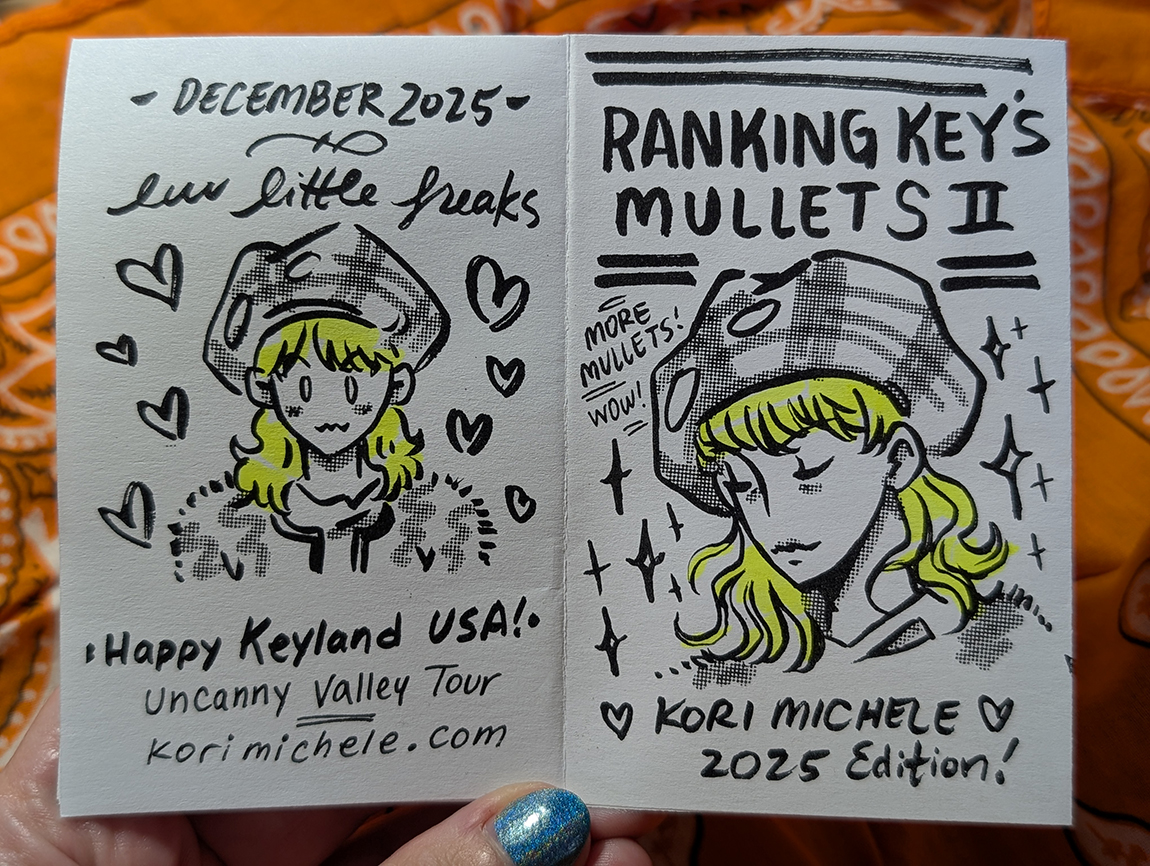 - DECEMBER 2025 -
luv little freaks
•Happy Keyland USA!•
Uncanny Valley Tour
korimichele.com
RANKING KEY'S
MULLETS II
MORE
MULLETS!
WOW!
♡ KORI MICHELE ♡
2025 Edition!